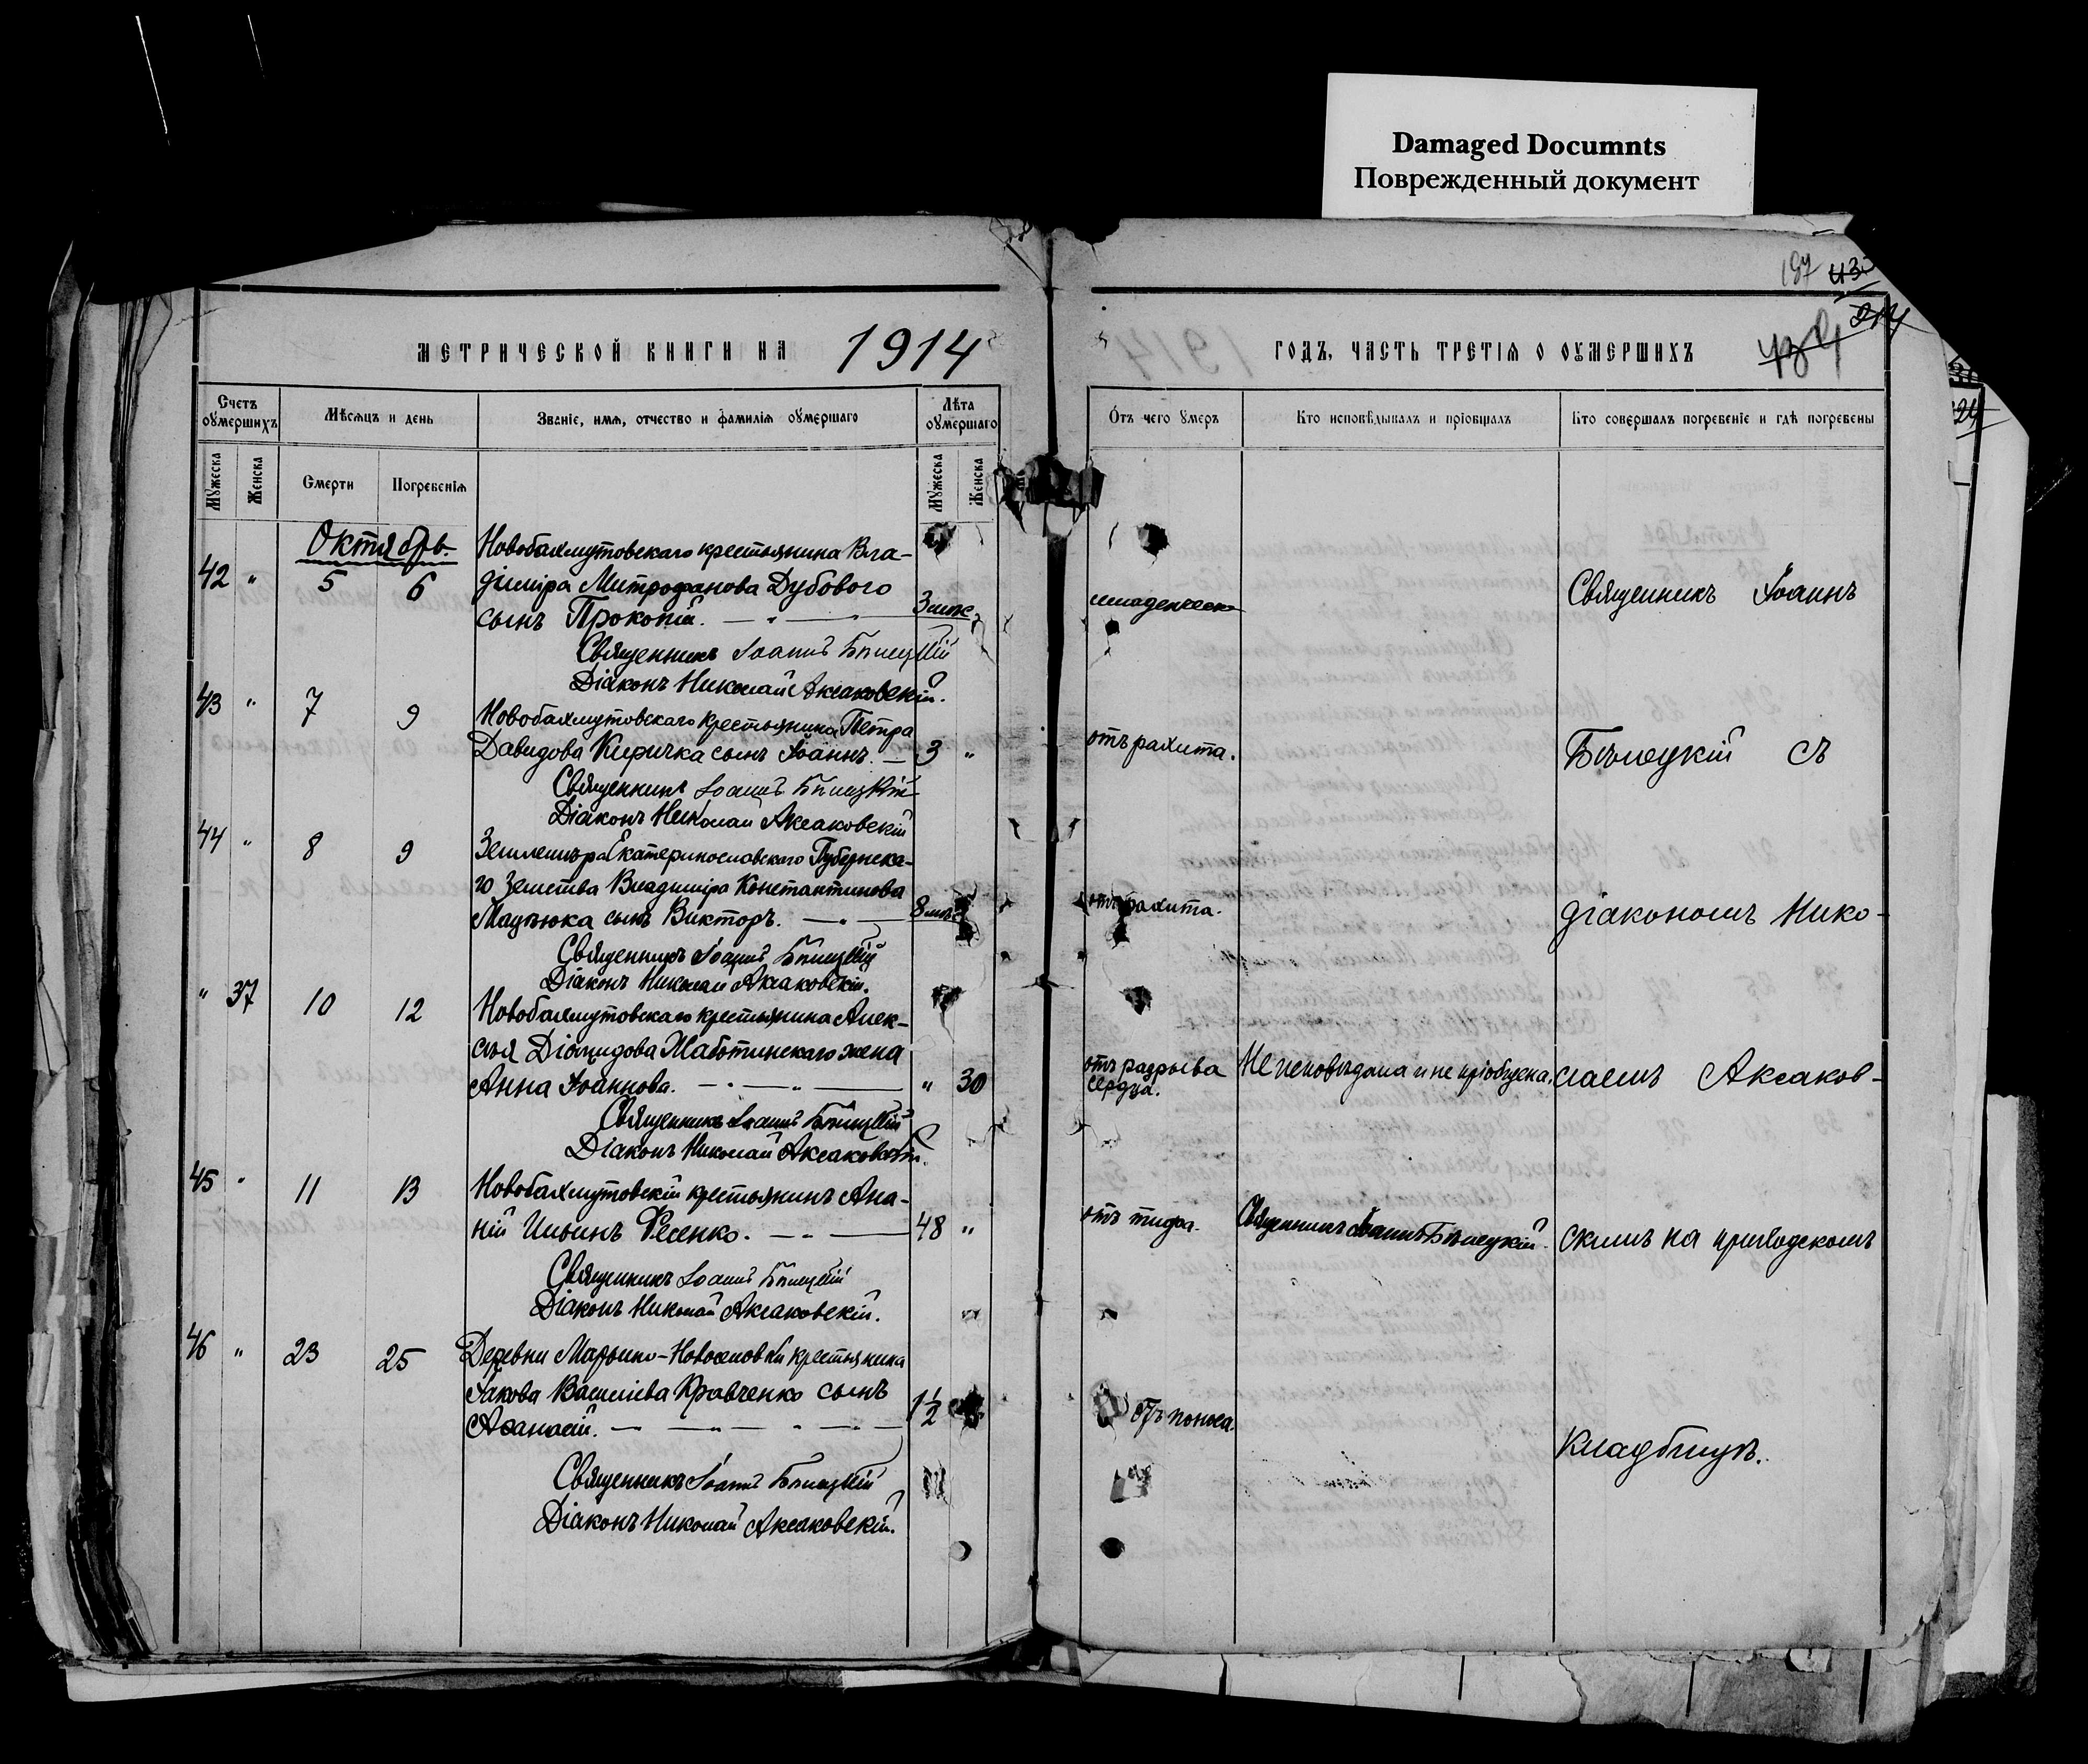 Damaged Documnts
Поврежденный документ
187
МЕТРИЧЕСКОЙ КНИГИ НА 1914
ГОДЪ, ЧАСТЬ ТРЕТІЯ О ОУМЕРШИХЪ
Счетъ оумершихъ
Мѣсяцъ и день
Званіе, имя, отчество и фамилія оумершаго
Лѣта оумершаго
Отъ чего умеръ
Кто исповѣдывалъ и пріобщалъ
Кто совершалъ погребеніе и гдѣ погребены
Мужеска
Женска
Смерти
Погребенія
Мужеска
Женска
Октябрь.
Новобахмутовскаго крестьянина Вла-
42 " 5 6 диміра Митрофанова Дубового
сынъ Прокопій. — " — 3 мѣс. младенческ.
Священникъ Іоаннъ Бѣлецкій
Діаконъ Николай Аксаковскій.
43 " 7 9 Новобахмутовскаго крестьянина Петра
Давидова Киричка сынъ Іоаннъ. — 3 " отъ рахита.
Священникъ Іоаннъ Бѣлецкій
Діаконъ Николай Аксаковскій
44 " 8 9 Землемѣра Екатеринославскаго Губернска-
го Земства Владиміра Константинова
Мацѣюка сынъ Викторъ. — " — 8 мѣс. отъ рахита.
Священникъ Іоаннъ Бѣлецкій
Діаконъ Николай Аксаковскій.
" 37 10 12 Новобахмутовскаго крестьянина Алек-
сѣя Діомидова Жаботинскаго жена
Анна Іоаннова. — " — " — " 30 отъ разрыва сердца. Не исповѣдана и не пріобщена.
Священникъ Іоаннъ Бѣлецкій
Діаконъ Николай Аксаковскій.
45 " 11 13 Новобахмутовскій крестьянинъ Ана-
ній Ильинъ Фесенко. — " — 48 " отъ тифа. Священникъ Іоаннъ Бѣлецкій.
Священникъ Іоаннъ Бѣлецкій
Діаконъ Николай Аксаковскій.
46 " 23 25 Деревни Марьино-Новоселовки крестьянина
Іакова Василіева Кравченко сынъ
Аѳанасій. — " — " — 1 1/2 отъ поноса.
Священникъ Іоаннъ Бѣлецкій
Діаконъ Николай Аксаковскій.
Священникъ Іоаннъ
Бѣлецкій съ
діакономъ Нико-
лаемъ Аксаков-
скимъ на приходскомъ
кладбищѣ.